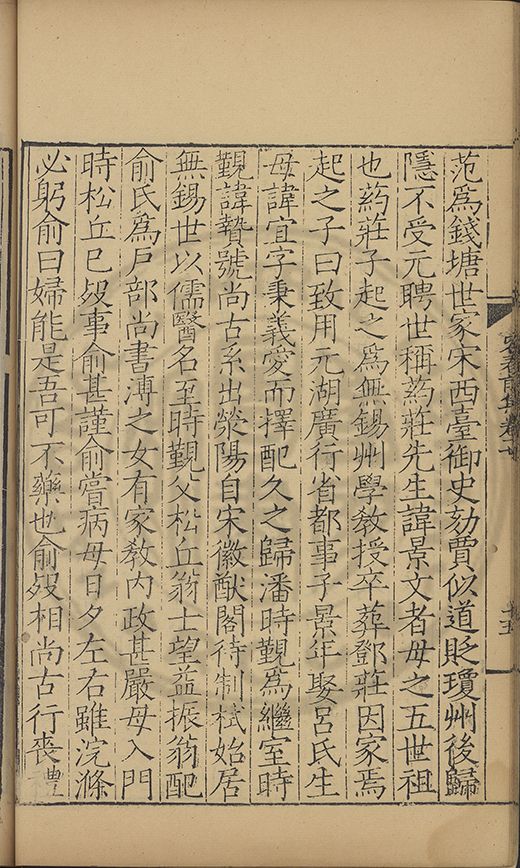 范爲錢塘世家宋西臺御史劾賈似道貶瓊州後歸
隱不受元聘世稱葯莊先生諱景文者母之五世祖
也葯莊子起之爲無錫州學敎授卒葬鄧莊因家焉
起之子曰致用元湖廣行省都事子景年娶呂氏生
母諱宜字秉義愛而擇配久之歸潘時覲爲繼室時
覲諱贄號尚古系出滎陽自宋徽猷閣待制栻始居
無錫世以儒醫名至時覲父松丘翁士望益振翁配
俞氏爲戸部尚書溥之女有家敎內政甚嚴母入門
時松丘已歿事俞甚謹俞嘗病母日夕左右雖浣滌
必躬俞曰婦能是吾可不藥也俞歿相尚古行喪禮